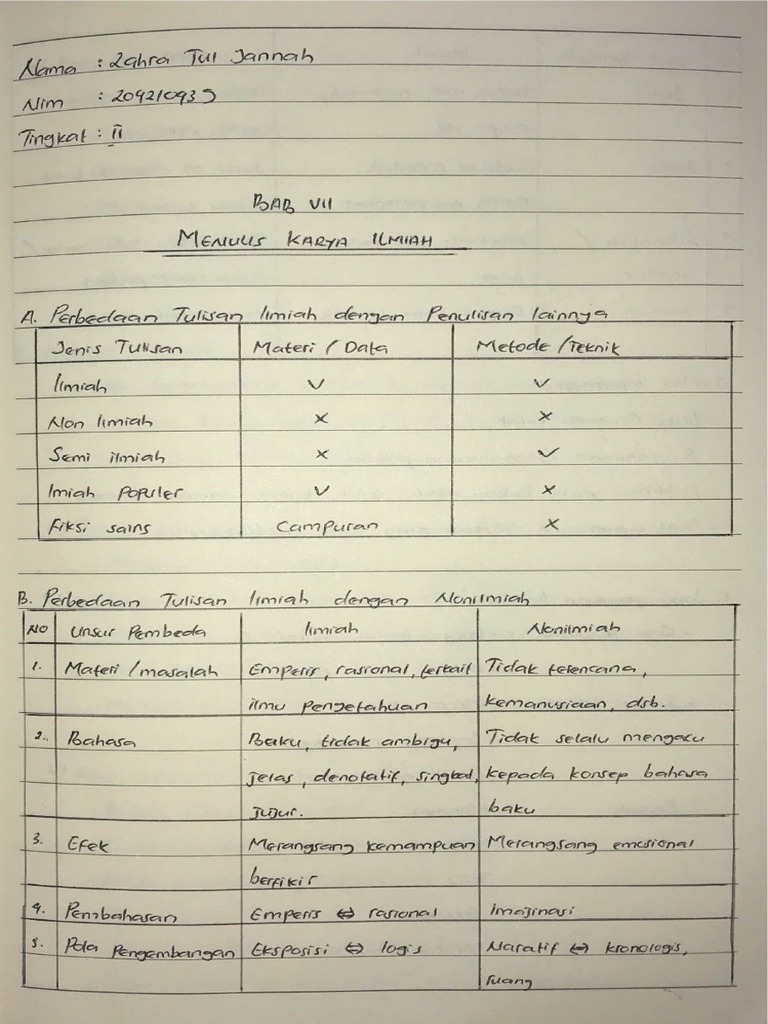 Nama : Zahra Tul Jannah
Nim : 209210935
Tingkat : II
BAB VII
MENULIS KARYA ILMIAH
A. Perbedaan Tulisan Ilmiah dengan Penulisan lainnya
Jenis Tulisan Materi / Data Metode / Teknik
Ilmiah ✓ ✓
Non Ilmiah × ×
Semi ilmiah × ✓
Imiah Populer ✓ ×
Fiksi sains Campuran ×
B. Perbedaan Tulisan Ilmiah dengan Nonilmiah
NO Unsur Pembeda Ilmiah Nonilmiah
1. Materi / masalah Emperis, rasional, terkait Tidak terencana,
ilmu pengetahuan kemanusiaan, dsb.
2. Bahasa Baku, tidak ambigu, Tidak selalu mengacu
jelas, denotatif, singkat, kepada konsep bahasa
jujur. baku
3. Efek Merangsang kemampuan Merangsang emosional
berfikir
4. Pembahasan Emperis ⇔ rasional Imajinasi
5. Pola Pengembangan Eksposisi ⇔ logis Naratif ⇔ kronologis,
ruang